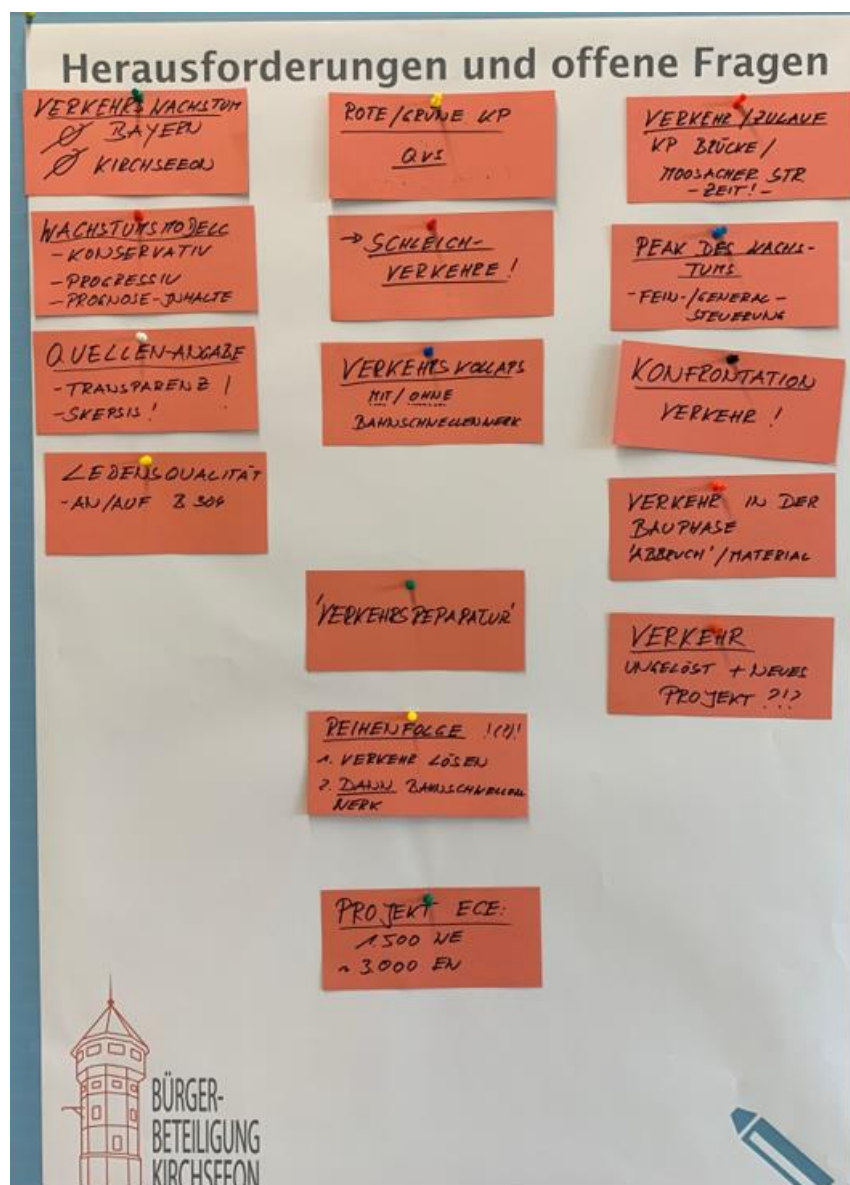 Herausforderungen und offene Fragen
VERKEHRSWACHSTUM
Ø BAYERN
Ø KIRCHSEEON
WACHSTUMSMODELL
- KONSERVATIV
- PROGRESSIV
- PROGNOSE-INHALTE
QUELLEN-ANGABE
- TRANSPARENZ !
- SKEPSIS !
LEBENSQUALITÄT
- AN/AUF B 304
ROTE/GRÜNE KP
QVS
→ SCHLEICH-
VERKEHRE !
VERKEHRSKOLLAPS
MIT/OHNE
BAHNSCHWELLENWERK
'VERKEHRSREPARATUR'
REIHENFOLGE !(?)!
1. VERKEHR LÖSEN
2. DANN BAHNSCHWELLEN
WERK
PROJEKT ECE:
1.500 WE
~ 3.000 EW
VERKEHR/ZULAUF
KP BRÜCKE/
MOOSACHER STR
- ZEIT! -
PEAK DES WACHS-
TUMS
- FEIN-/GENERAL-
STEUERUNG
KONFRONTATION
VERKEHR !
VERKEHR IN DER
BAUPHASE
'ABBRUCH'/MATERIAL
VERKEHR
UNGELÖST + NEUES
PROJEKT ?!?
BÜRGER-
BETEILIGUNG
KIRCHSEEON